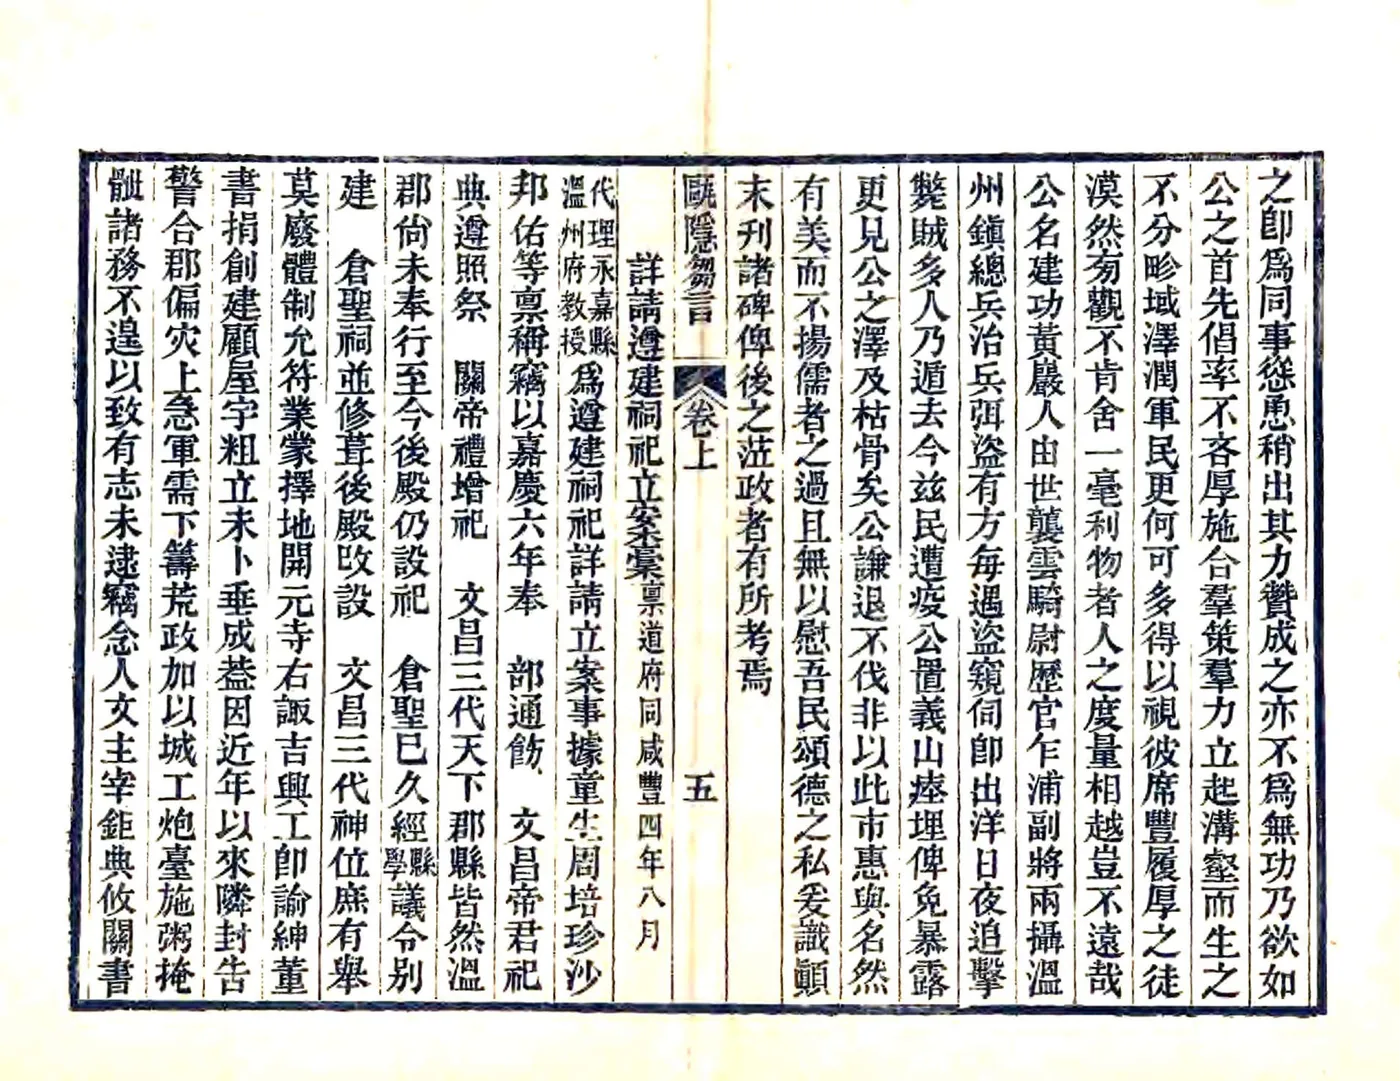 之卽爲同事慫恿稍出其力贊成之亦不爲無功乃欲如
公之首先倡率不吝厚施合羣策羣力立起溝壑而生之
不分畛域澤潤軍民更何可多得以視彼席豐履厚之徒
漠然旁觀不肯舍一毫利物者人之度量相越豈不遠哉
公名建功黃巖人由世襲雲騎尉歷官乍浦副將兩攝溫
州鎭總兵治兵弭盜有方每遇盜窺伺卽出洋日夜追擊
斃賊多人乃遁去今茲民遭疫公置義山瘞埋俾免暴露
更見公之澤及枯骨矣公謙退不伐非以此市惠與名然
有美而不揚儒者之過且無以慰吾民頌德之私爰識顚
末刊諸碑俾後之蒞政者有所考焉
甌隱芻言 卷上 五
詳請遵建祠祀立案稾稟道府同咸豐四年八月
代理永嘉縣溫州府教授爲遵建祠祀詳請立案事據童生周培珍沙
邦佑等稟稱竊以嘉慶六年奉　部通飭　文昌帝君祀
典遵照祭　關帝禮增祀　文昌三代天下郡縣皆然溫
郡尙未奉行至今後殿仍設祀　倉聖巳久經縣學議令別
建　倉聖祠並修葺後殿改設　文昌三代神位庶有舉
莫廢體制允符業蒙擇地開元寺右諏吉興工卽諭紳董
書捐創建顧屋宇粗立未卜垂成葢因近年以來隣封告
警合郡偏灾上急軍需下籌荒政加以城工炮臺施粥掩
骴諸務不遑以致有志未逮竊念人文主宰鉅典攸關書